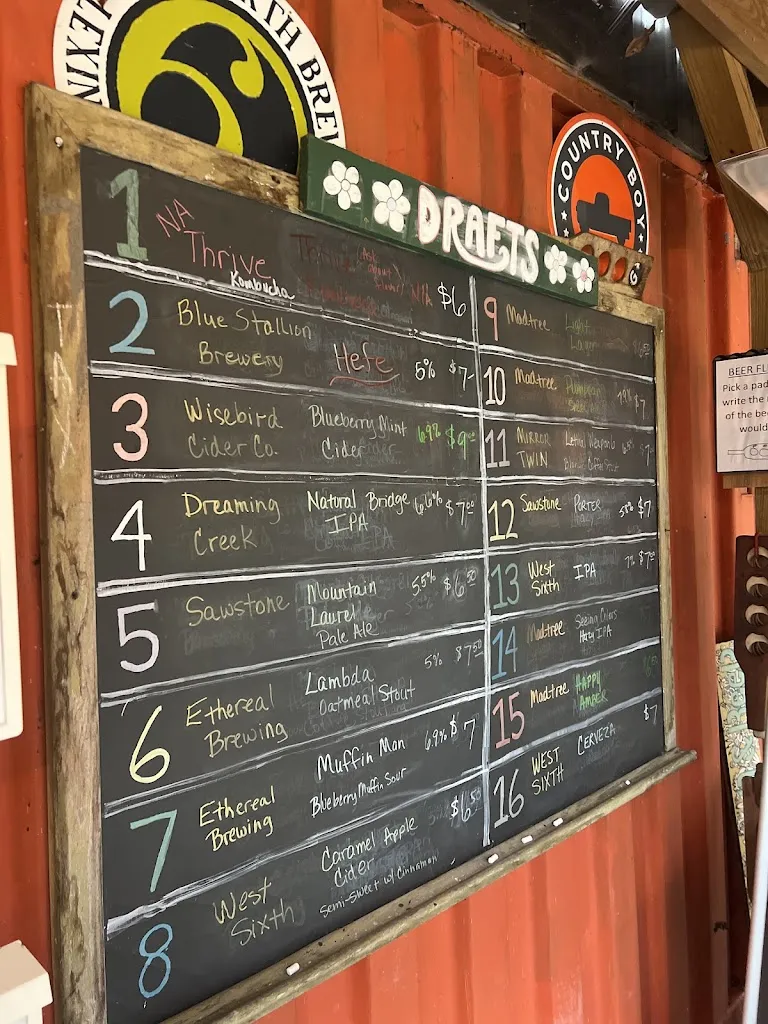 LEXIN
TH BREW
COUNTRY BOY
DRAFTS
1 NA Thrive Kombucha
Ask about flavor
N/A $6
2 Blue Stallion Brewery Hefe 5% $7-
3 Wisebird Cider Co. Blueberry Mint Cider 6.9% $9
4 Dreaming Creek Natural Bridge IPA 6.6% $7.00
5 Sawstone Mountain Laurel Pale Ale 5.5% $6.50
6 Ethereal Brewing Lambda Oatmeal Stout 5% $7.50
7 Ethereal Brewing Muffin Man Blueberry Muffin Sour 6.9% $7
8 West Sixth Caramel Apple Cider Semi-Sweet w/ Cinnamon $6.50
9 Madtree Light Lager
10 Madtree $7
11 MIRROR TWIN Coffee Stout
12 Sawstone PORTER 5.8% $7
13 West Sixth IPA 7% $7.00
14 Madtree Seeing Colors Hazy IPA
15 Madtree HAPPY AMBER
16 WEST SIXTH CERVEZA $7
BEER FL
Pick a pad
write the
of the bee
would